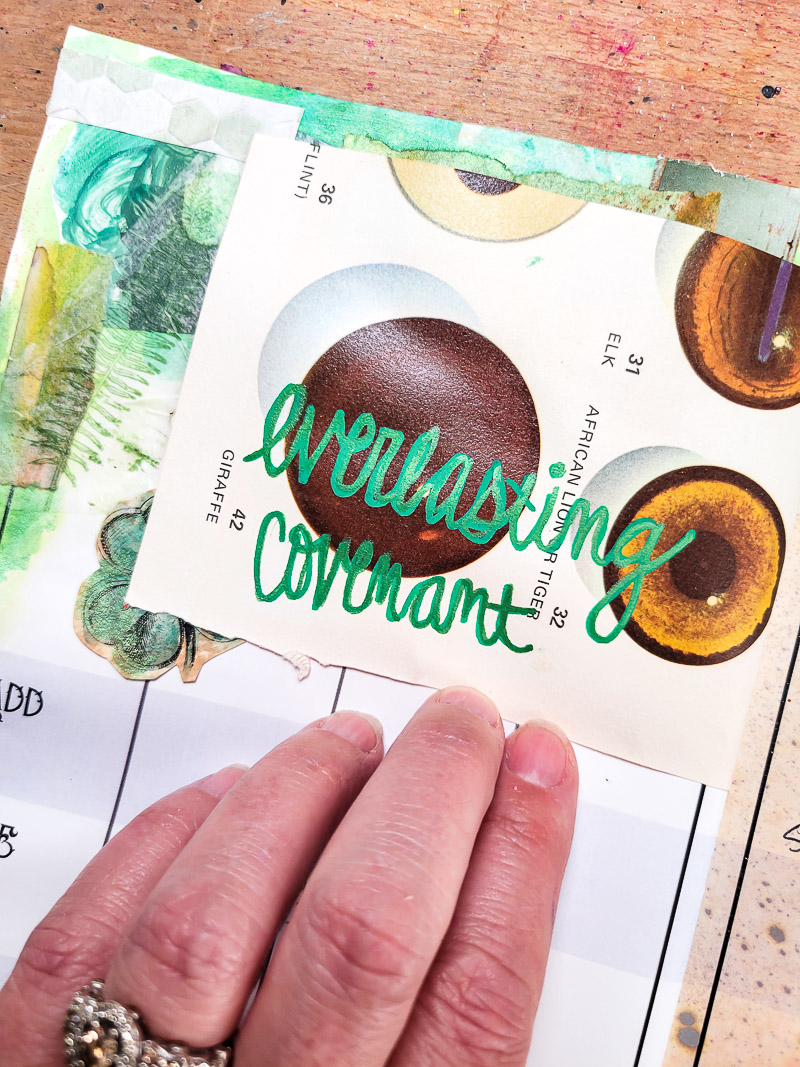 FLINT)
36
ELK
31
everlasting
covenant
AFRICAN LION
TIGER
32
GIRAFFE
42